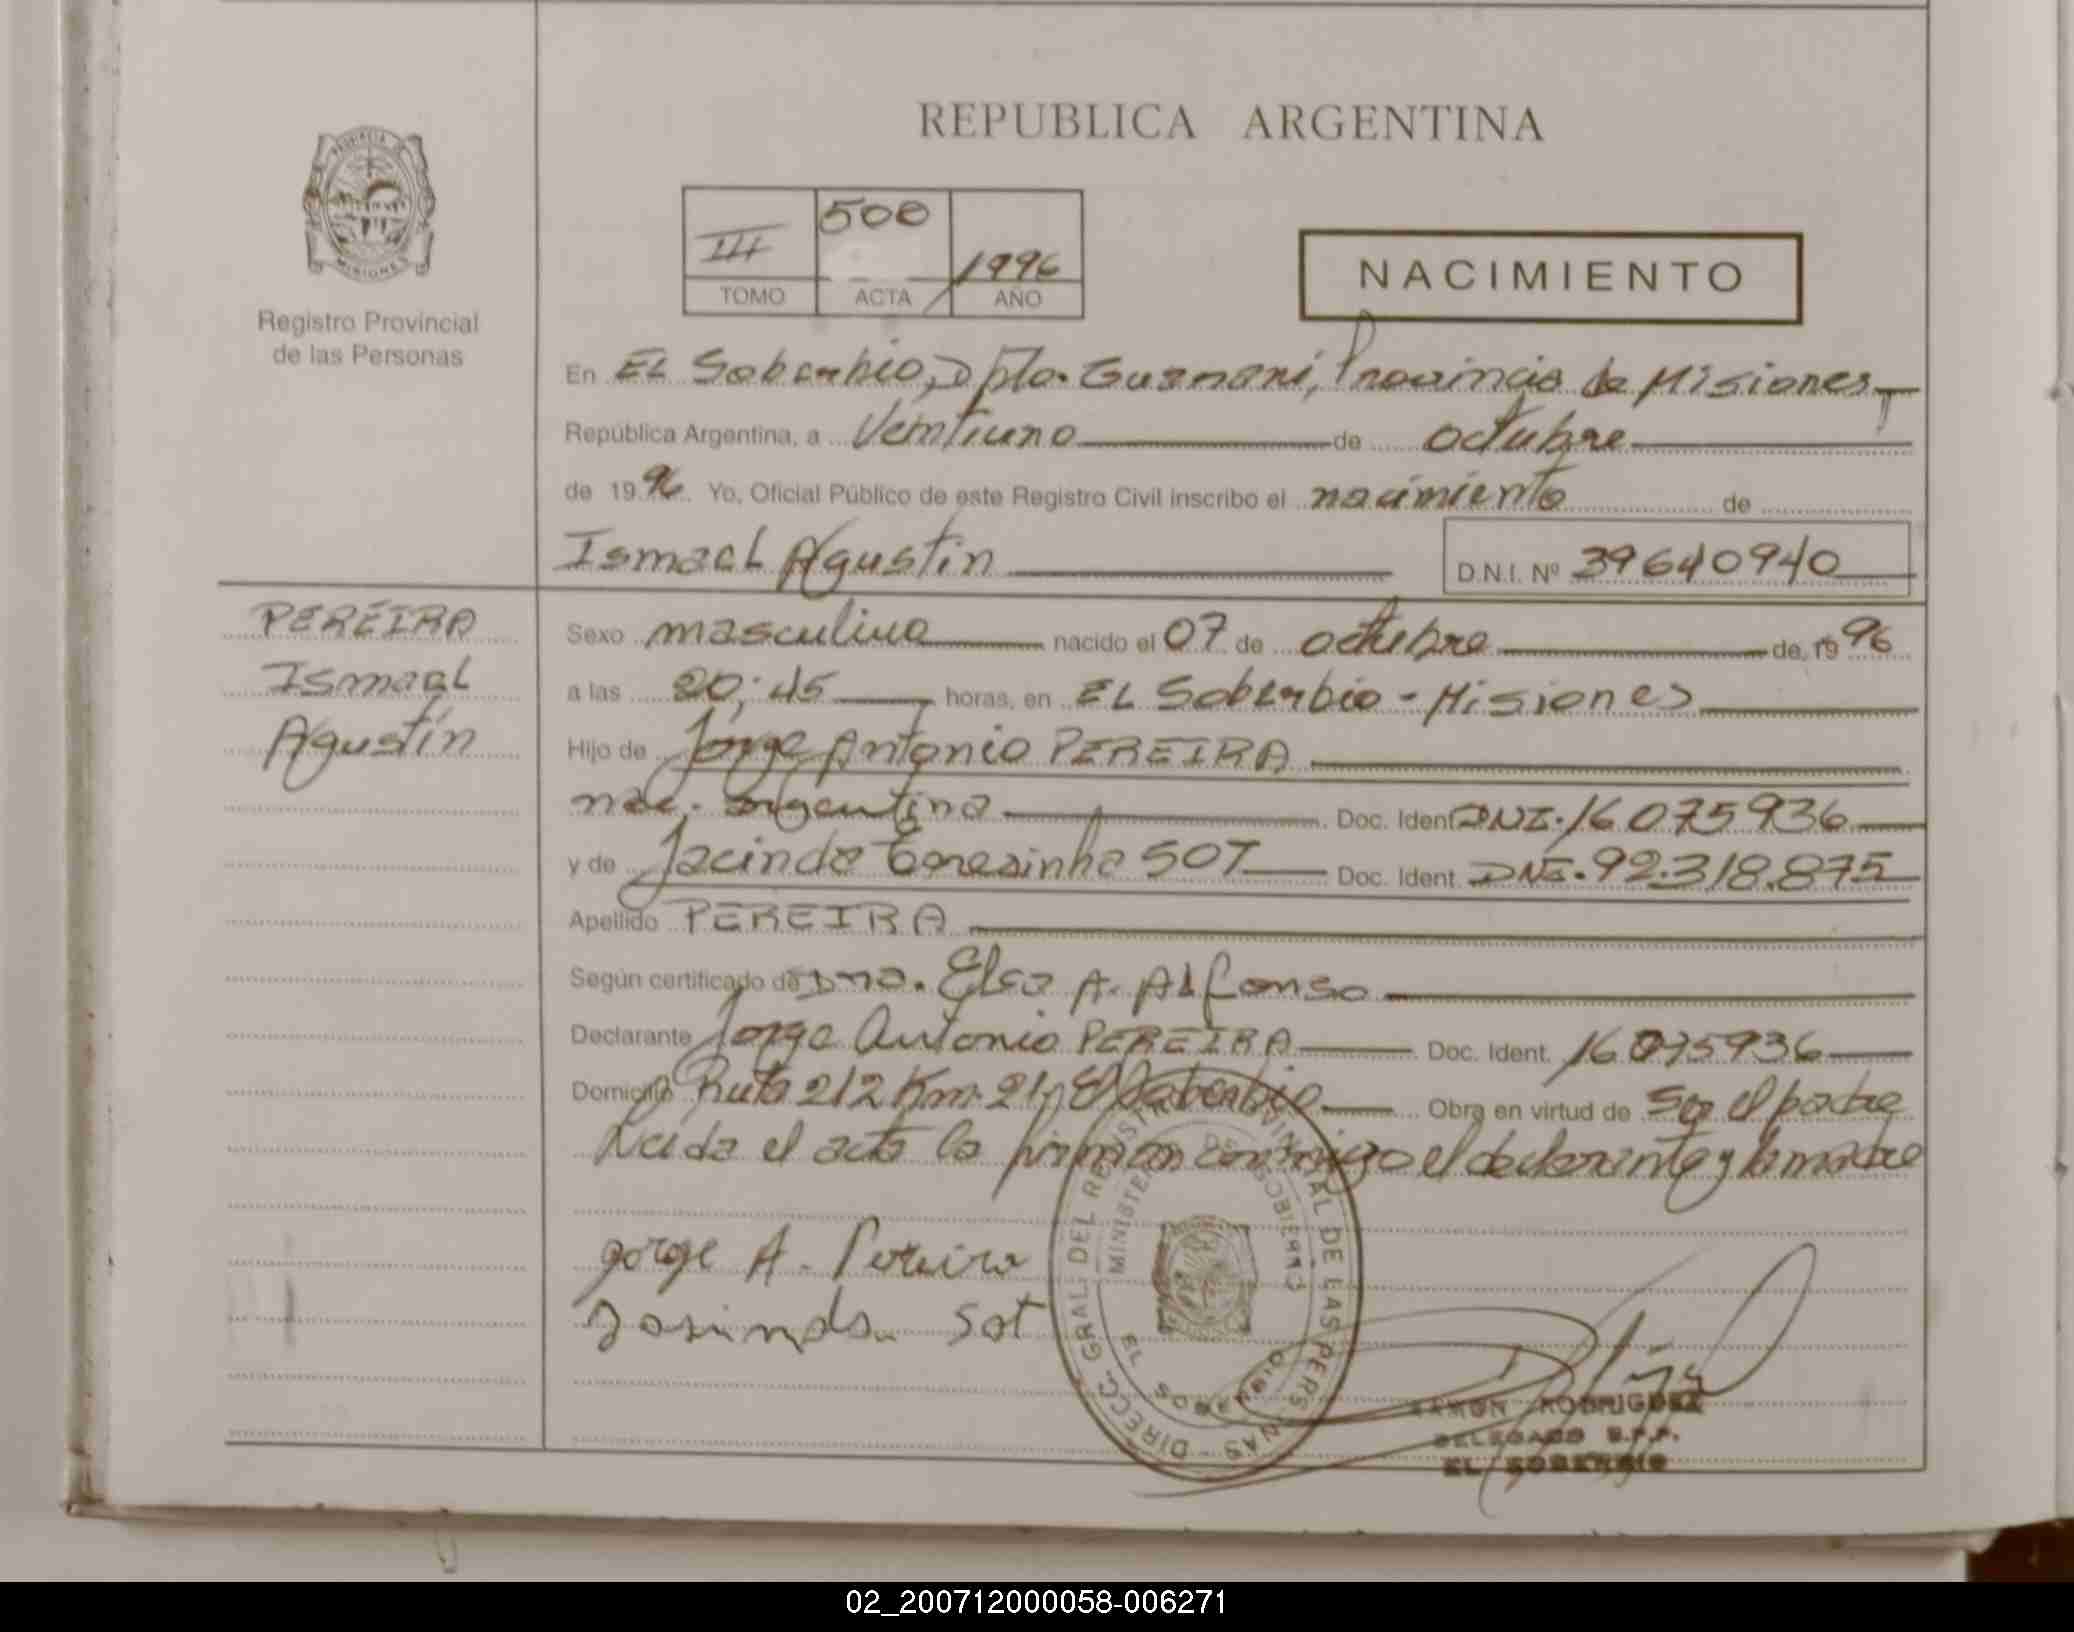 REPUBLICA ARGENTINA
PROVINCIA DE
MISIONES
Registro Provincial
de las Personas
III 500 1996
TOMO ACTA AÑO
NACIMIENTO
En EL Soberbio, Dpto. Guarani, Provincia de Misiones
República Argentina, a Veintiuno de octubre
de 1996. Yo, Oficial Público de este Registro Civil inscribo el nacimiento de
Ismael Agustín D.N.I. Nº 39640940
PEREIRA
Ismael
Agustín
Sexo masculino nacido el 07 de octubre de 1996
a las 20:45 horas, en EL Soberbio - Misiones
Hijo de Jorge Antonio PEREIRA
nac. argentina Doc. Ident DNI. 16075936
y de Jacinda Teresinha SOT Doc. Ident. DNI. 92.318.875
Apellido PEREIRA
Según certificado de Dna. Elsa A. Alfonso
Declarante Jorge Antonio PEREIRA Doc. Ident. 16075936
Domicilio Ruta 212 Km. 21, El Soberbio Obra en virtud de ser el padre
Leida el acta la firman conmigo el declarante y la madre
Jorge A. Pereira
Jasinda Sot
DIRECC. GRAL. DEL REGISTRO PROVINCIAL DE LAS PERSONAS
MINISTERIO DE GOBIERNO
EL SOBERBIO
RAMON RODRIGUEZ
DELEGADO R.P.P.
EL SOBERBIO
02_200712000058-006271